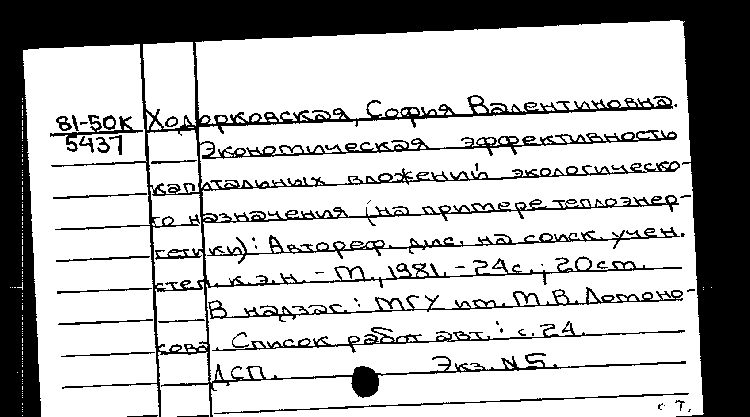 81-50К Ходорковская, София Валентиновна.
5437
Экономическая эффективность
капитальных вложений экологическо-
го назначения (на примере теплоэнер-
гетики): Автореф. дис. на соиск. учен.
степ. к.э.н. - М., 1981. - 24с.; 20 см.
В надзаг.: МГУ им. М.В. Ломоно-
сова. Список работ авт.: с. 24.
ДСП. Экз. N5.
с. т.